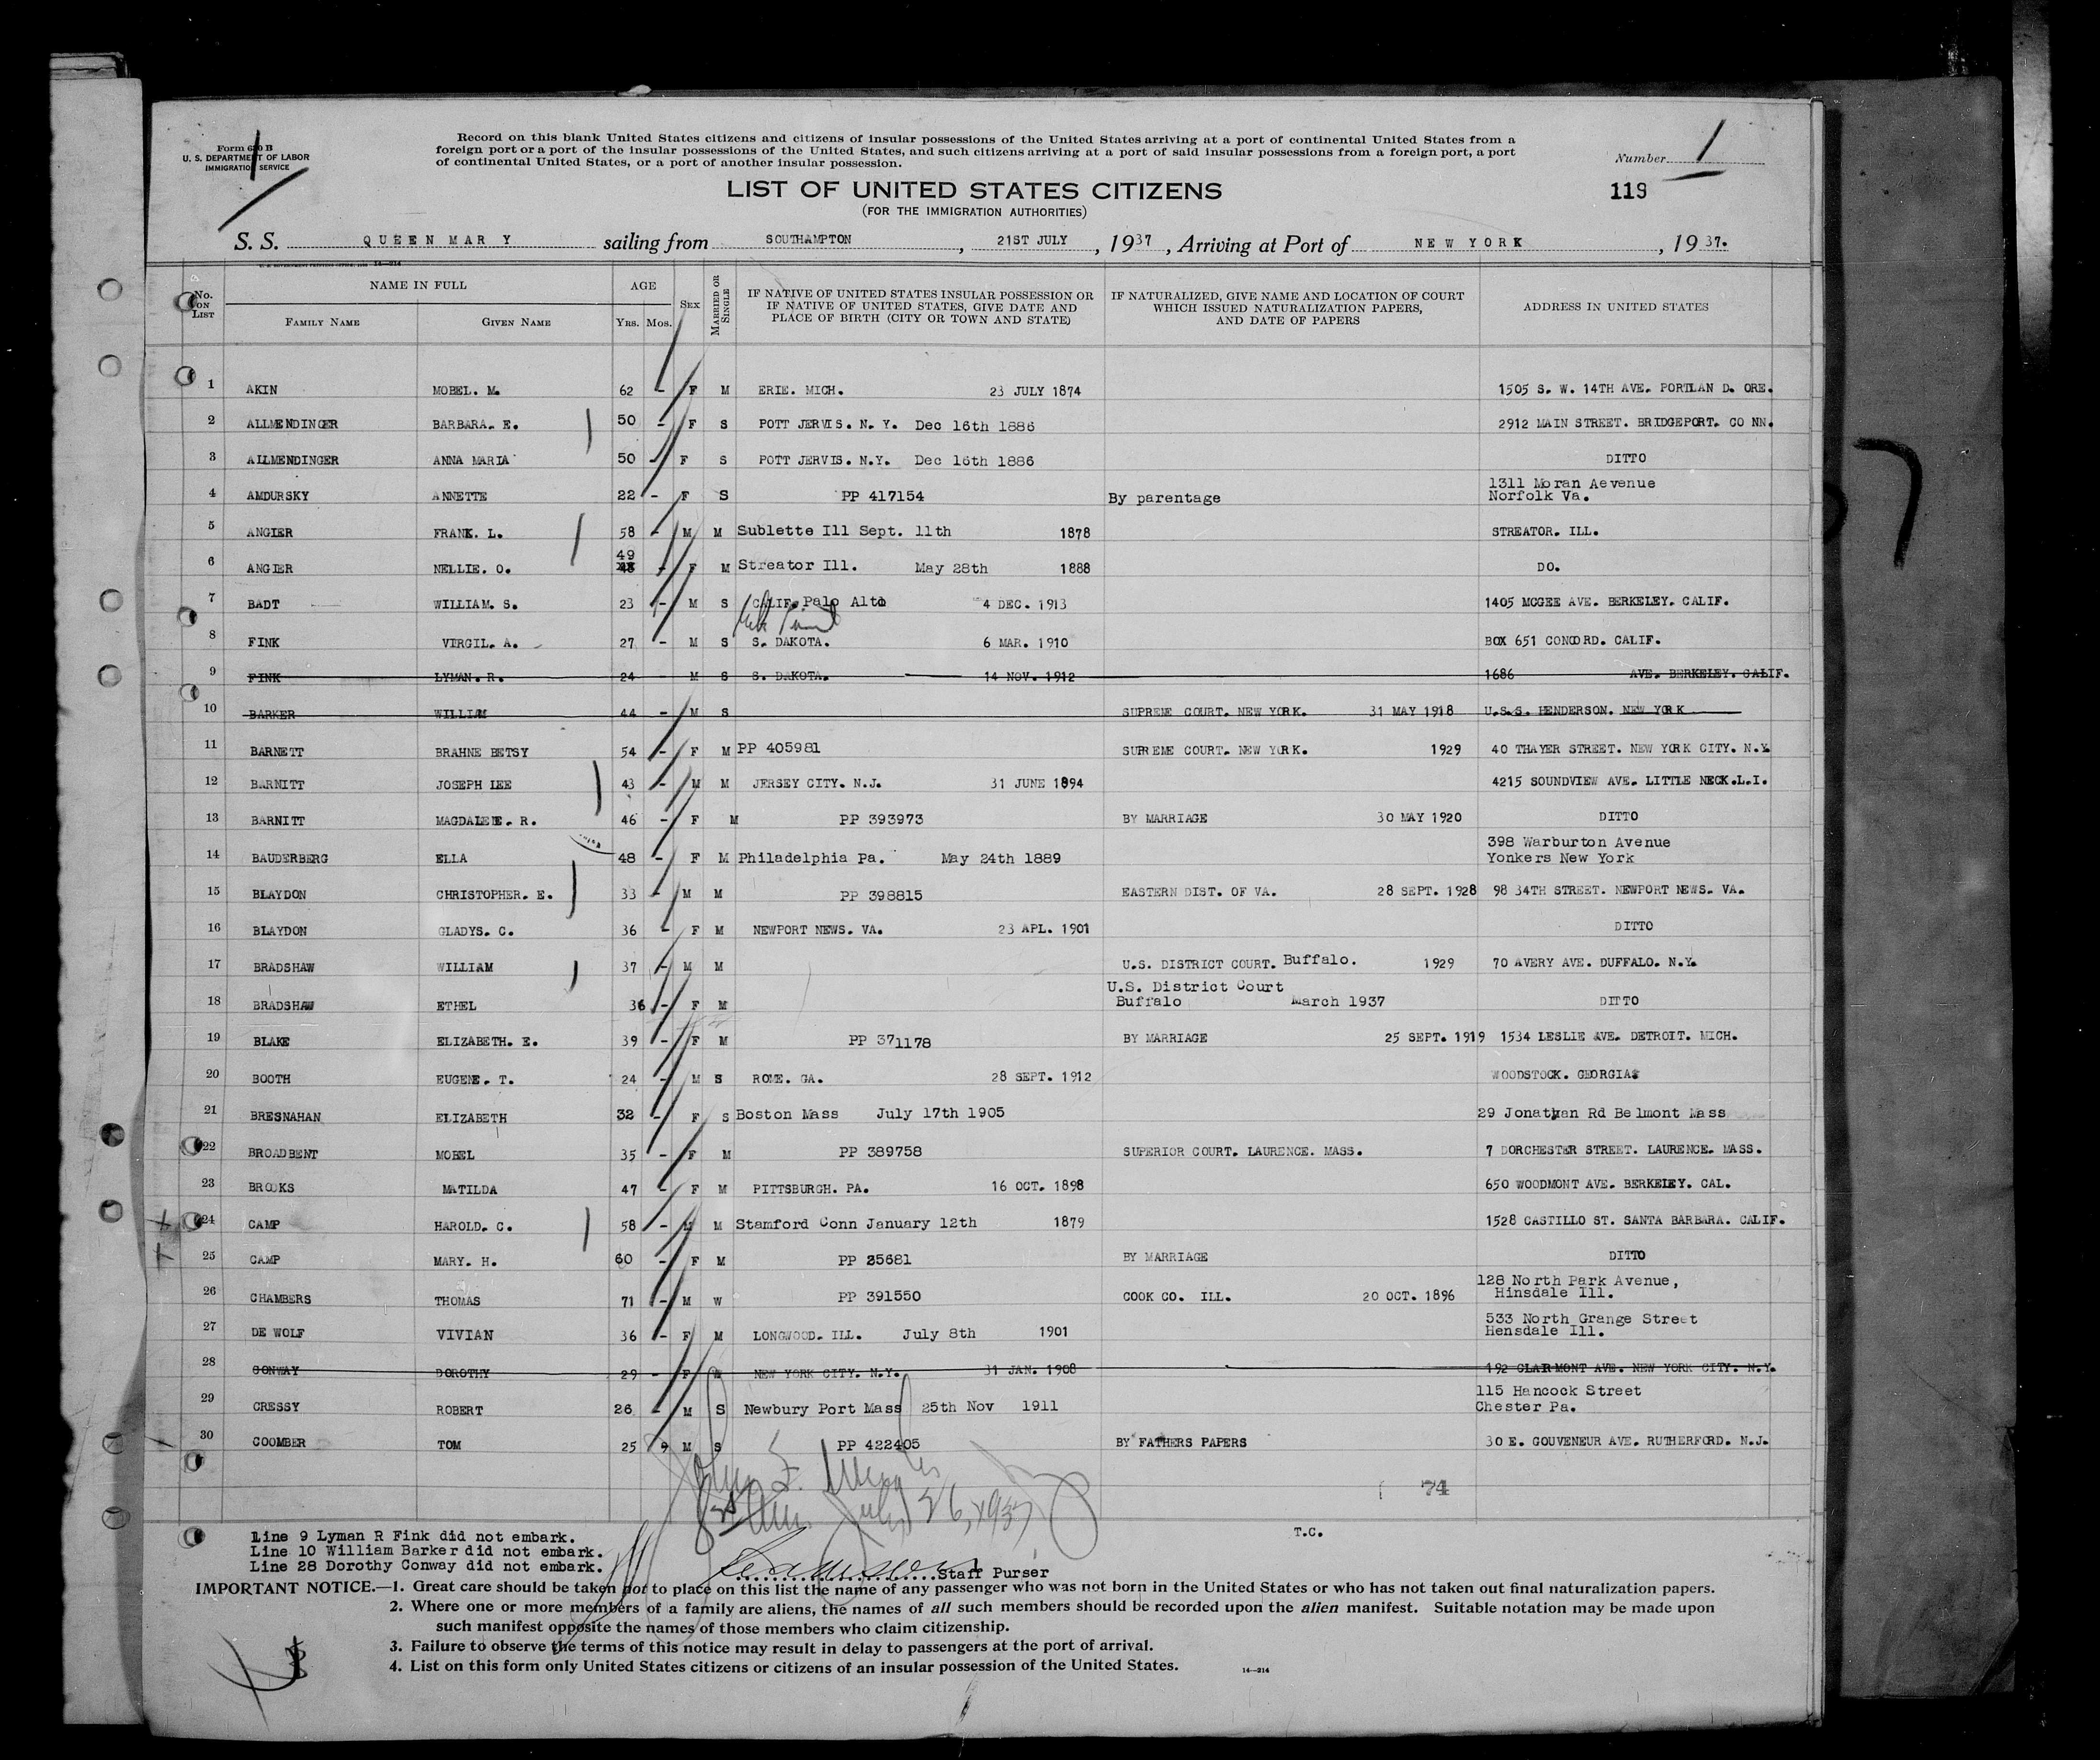 Form 630 B
U. S. DEPARTMENT OF LABOR
IMMIGRATION SERVICE
Record on this blank United States citizens and citizens of insular possessions of the United States arriving at a port of continental United States from a
foreign port or a port of the insular possessions of the United States, and such citizens arriving at a port of said insular possessions from a foreign port, a port
of continental United States, or a port of another insular possession.
Number 1
LIST OF UNITED STATES CITIZENS
(FOR THE IMMIGRATION AUTHORITIES)
119
S. S. QUEEN MARY sailing from SOUTHAMPTON, 21ST JULY, 1937, Arriving at Port of NEW YORK, 1937.
No. ON LIST NAME IN FULL FAMILY NAME GIVEN NAME AGE YRS. MOS. SEX MARRIED OR SINGLE IF NATIVE OF UNITED STATES INSULAR POSSESSION OR IF NATIVE OF UNITED STATES, GIVE DATE AND PLACE OF BIRTH (CITY OR TOWN AND STATE) IF NATURALIZED, GIVE NAME AND LOCATION OF COURT WHICH ISSUED NATURALIZATION PAPERS, AND DATE OF PAPERS ADDRESS IN UNITED STATES
1 AKIN MOBEL. M. 62 - F M ERIE. MICH. 23 JULY 1874 1505 S. W. 14TH AVE. PORTLAN D. ORE.
2 ALLMENDINGER BARBARA. E. 50 - F S POTT JERVIS. N. Y. Dec 16th 1886 2912 MAIN STREET. BRIDGEPORT. CO NN.
3 ALLMENDINGER ANNA MARIA 50 - F S POTT JERVIS. N.Y. Dec 16th 1886 DITTO
4 AMDURSKY ANNETTE 22 - F S PP 417154 By parentage 1311 Moran Aevenue Norfolk Va.
5 ANGIER FRANK. L. 58 - M M Sublette Ill Sept. 11th 1878 STREATOR. ILL.
6 ANGIER NELLIE. O. 49 - F M Streator Ill. May 28th 1888 DO.
7 BADT WILLIAM. S. 23 - M S CALIF. Palo Alto 4 DEC. 1913 1405 MCGEE AVE. BERKELEY. CALIF.
8 FINK VIRGIL. A. 27 - M S S. DAKOTA. 6 MAR. 1910 BOX 651 CONCORD. CALIF.
9 FINK LYMAN. R. 24 M S S. DAKOTA. 14 NOV. 1912 1686 AVE. BERKELEY. CALIF.
10 BARKER WILLIAM 44 - M S SUPREME COURT. NEW YORK. 31 MAY 1918 U.S.S. HENDERSON. NEW YORK
11 BARNETT BRAHNE BETSY 54 - F M PP 405981 SUPREME COURT. NEW YORK. 1929 40 THAYER STREET. NEW YORK CITY. N.Y.
12 BARNITT JOSEPH LEE 43 - M M JERSEY CITY. N.J. 31 JUNE 1894 4215 SOUNDVIEW AVE. LITTLE NECK.L.I.
13 BARNITT MAGDALENE. R. 46 - F M PP 393973 BY MARRIAGE 30 MAY 1920 DITTO
14 BAUDERBERG ELLA 48 - F M Philadelphia Pa. May 24th 1889 398 Warburton Avenue Yonkers New York
15 BLAYDON CHRISTOPHER. E. 33 - M M PP 398815 EASTERN DIST. OF VA. 28 SEPT. 1928 98 34TH STREET. NEWPORT NEWS. VA.
16 BLAYDON GLADYS. C. 36 - F M NEWPORT NEWS. VA. 23 APL. 1901 DITTO
17 BRADSHAW WILLIAM 37 - M M U.S. DISTRICT COURT. Buffalo. 1929 70 AVERY AVE. DUFFALO. N.Y.
18 BRADSHAW ETHEL 36 - F M U.S. District Court Buffalo March 1937 DITTO
19 BLAKE ELIZABETH. E. 39 - F M PP 371178 BY MARRIAGE 25 SEPT. 1919 1534 LESLIE AVE. DETROIT. MICH.
20 BOOTH EUGENE. T. 24 - M S ROME. GA. 28 SEPT. 1912 WOODSTOCK. GEORGIA
21 BRESNAHAN ELIZABETH 32 - F S Boston Mass July 17th 1905 29 Jonathan Rd Belmont Mass
22 BROADBENT MOBEL 35 - F M PP 389758 SUPERIOR COURT. LAURENCE. MASS. 7 DORCHESTER STREET. LAURENCE. MASS.
23 BROOKS MATILDA 47 - F M PITTSBURGH. PA. 16 OCT. 1898 650 WOODMONT AVE. BERKELEY. CAL.
24 CAMP HAROLD. C. 58 - M M Stamford Conn January 12th 1879 1528 CASTILLO ST. SANTA BARBARA. CALIF.
25 CAMP MARY. H. 60 - F M PP 35681 BY MARRIAGE DITTO
26 CHAMBERS THOMAS 71 - M W PP 391550 COOK CO. ILL. 20 OCT. 1896 128 North Park Avenue, Hinsdale Ill.
27 DE WOLF VIVIAN 36 - F M LONGWOOD. ILL. July 8th 1901 533 North Grange Street Hensdale Ill.
28 CONWAY DOROTHY 29 - F NEW YORK CITY. N.Y. 31 JAN. 1908 192 CLAIRMONT AVE. NEW YORK CITY. N.Y.
29 CRESSY ROBERT 26 - M S Newbury Port Mass 25th Nov 1911 115 Hancock Street Chester Pa.
30 COOMBER TOM 25 9 M S PP 422405 BY FATHERS PAPERS 30 E. GOUVENEUR AVE. RUTHERFORD. N.J.
74
July 26, 1937
T.C.
Line 9 Lyman R Fink did not embark.
Line 10 William Barker did not embark.
Line 28 Dorothy Conway did not embark.
Staff Purser
IMPORTANT NOTICE.—1. Great care should be taken not to place on this list the name of any passenger who was not born in the United States or who has not taken out final naturalization papers.
2. Where one or more members of a family are aliens, the names of all such members should be recorded upon the alien manifest. Suitable notation may be made upon
such manifest opposite the names of those members who claim citizenship.
3. Failure to observe the terms of this notice may result in delay to passengers at the port of arrival.
4. List on this form only United States citizens or citizens of an insular possession of the United States.
14—214